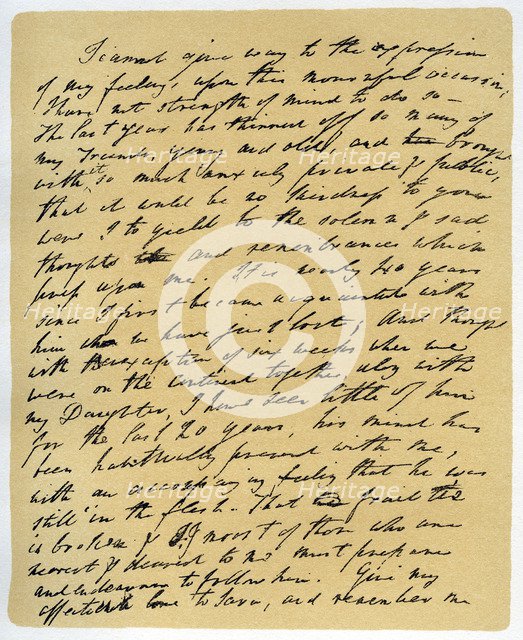 I cannot give way to the expression
of my feelings upon this mournful occasion;
I have not strength of mind to do so —
The last year has thinned off so many of
my Friends, young and old, and brought
with it so much anxiety private & public,
that it would be no kindness to you
were I to yield to the solemn & sad
thoughts and remembrances which
press upon me. It is nearly 40 years
since I first became acquainted with
him we have just lost; and though
with the exception of six weeks when we
were on the continent together, along with
my Daughter, I have seen little of him
for the last 20 years, his mind has
been habitually present with me,
with an accompanying feeling that he was
still in the flesh. That frail tie
is broken & I & most of those who are
nearest & dearest to me must prepare
and endeavour to follow him. Give my
affectionate love to Sara, and remember me
Heritage
Heritage
Heritage
Heritage
Heritage
Heritage
Heritage
Heritage
C